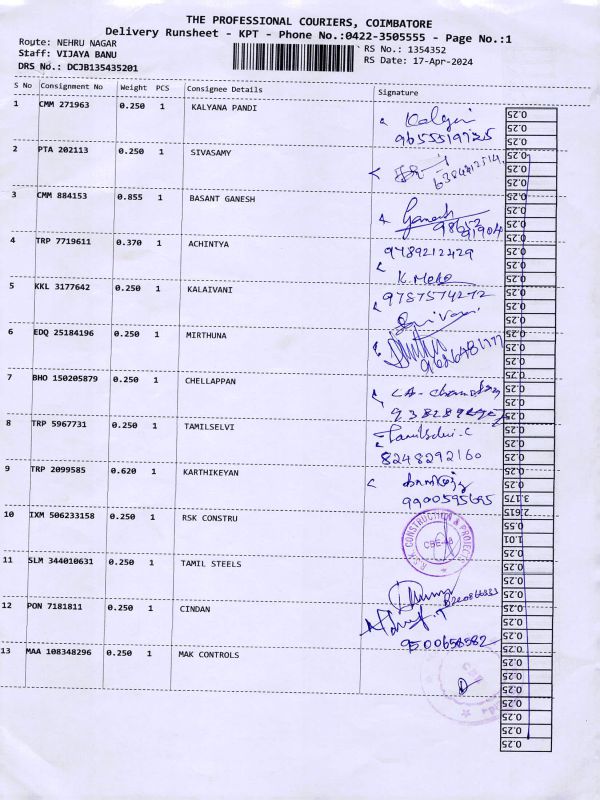 THE PROFESSIONAL COURIERS, COIMBATORE
Delivery Runsheet - KPT - Phone No.:0422-3505555 - Page No.:1
Route: NEHRU NAGAR
RS No.: 1354352
Staff: VIJAYA BANU
RS Date: 17-Apr-2024
DRS No.: DCJB135435201
S No Consignment No Weight PCS Consignee Details Signature
1 CMM 271963 0.250 1 KALYANA PANDI
2 PTA 202113 0.250 1 SIVASAMY
3 CMM 884153 0.855 1 BASANT GANESH Ganesh
4 TRP 7719611 0.370 1 ACHINTYA 9789212429
5 KKL 3177642 0.250 1 KALAIVANI 9787574272
6 EDQ 25184196 0.250 1 MIRTHUNA
7 BHO 150205879 0.250 1 CHELLAPPAN
8 TRP 5967731 0.250 1 TAMILSELVI Tamilselvi. C
8248292160
9 TRP 2099585 0.620 1 KARTHIKEYAN
9900595695
10 IXM 506233158 0.250 1 RSK CONSTRU R.S.K. CONSTRUCTION & PROJECTS
11 SLM 344010631 0.250 1 TAMIL STEELS
12 PON 7181811 0.250 1 CINDAN
9500656582
13 MAA 108348296 0.250 1 MAK CONTROLS
0.25
0.25
0.25
0.25
0.25
0.25
0.25
0.25
0.25
0.25
0.25
0.25
0.25
0.25
0.25
0.25
0.25
0.25
0.25
0.25
0.25
0.25
0.25
0.25
0.25
0.25
0.25
0.25
3.175
2.615
0.55
1.01
0.25
0.25
0.25
0.25
0.25
0.25
0.25
0.25
0.25
0.25
0.25
0.25
0.25
0.25
0.25